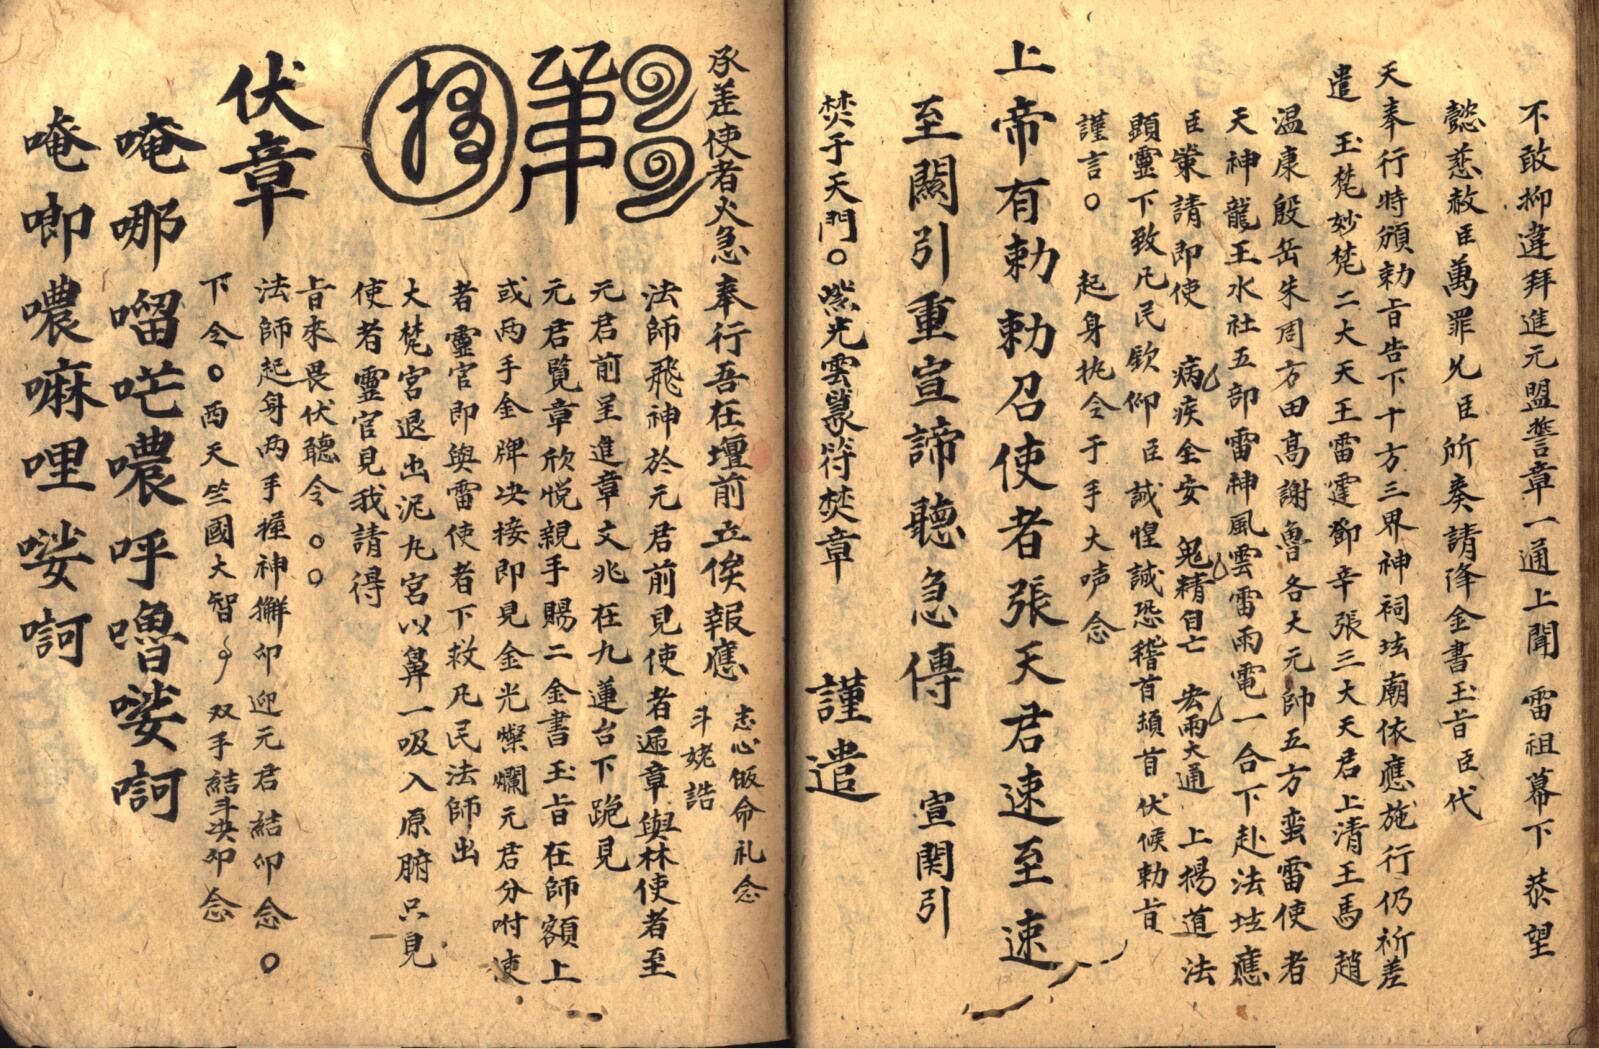 不敢抑違拜進元盟誓章一通上聞 雷祖幕下 恭望
懿慈赦臣萬罪允臣所奏請降金書玉旨臣代
天奉行特頒勅旨告下十方三界神祠坛廟依應施行仍祈差
遣 玉梵妙梵二大天王雷霆鄧辛張三大天君上清王馬趙
温康殷岳朱周方田高謝魯各大元帥五方蛮雷使者
天神龍王水社五部雷神風雲雷雨電一合下赴法坛應
臣柴請即使 病疾全安 鬼精自亡 宏雨大通 上揚道法
顕靈下致凡民欽仰臣誠惶誠恐稽首頓首伏候勅旨
謹言○ 起身执令于手大声念
上帝有勅勅召使者張天君速至速
至闕引重宣諦聽急傳 宣関引
焚于天門○紫光雲篆符焚章 謹遣
承差使者火急奉行吾在壇前立俟報應 志心皈命礼念
斗姥誥
法師飛神於元君前見使者逓章與林使者至
元君前呈進章文兆在九蓮台下跪見
元君覽章欣悦親手賜二金書玉旨在師額上
或两手金牌决接即見金光燦爛元君分咐使
者靈官即與雷使者下救凡民法師出
大梵宮退出泥丸宮以鼻一吸入原腑只見
使者靈官見我請得
旨來畏伏聽令○○
法師起身两手握神獬卯迎元君結卯念○
下令○西天竺國大智 双手結斗决卯念
伏章
唵哪㗜吂噥呼嚕娑訶
唵唧噥嘛哩娑訶